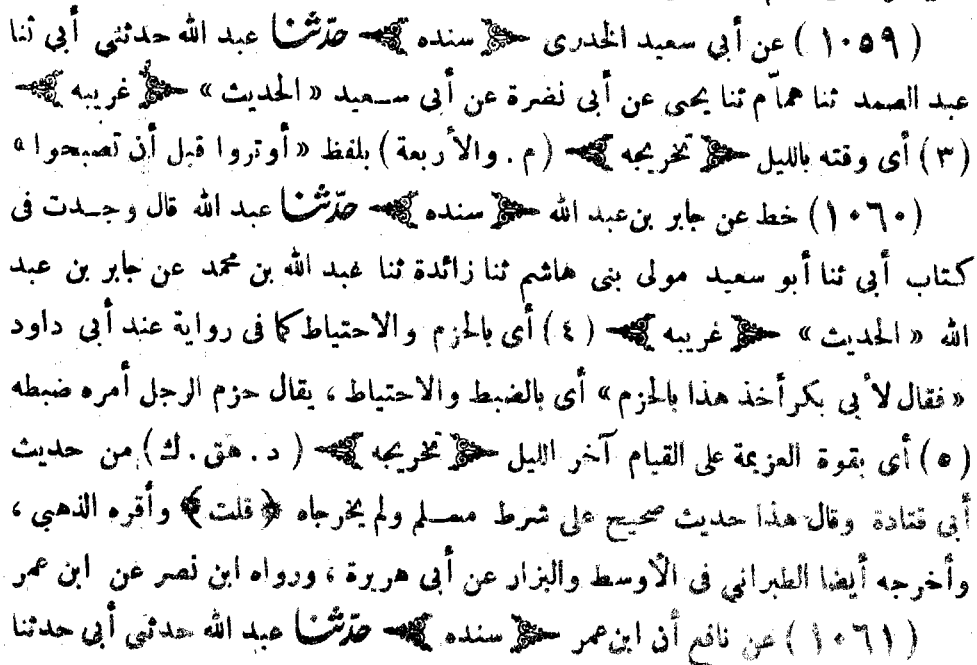 ( ١٠٥٩ ) عن أبي سعيد الخدرى ﴿ سنده ﴾ حدّثنا عبد الله حدثني أبي ثنا
عبد الصمد ثنا همّام ثنا يحى عن أبى نضرة عن أبى سعيد « الحديث » ﴿ غريبه ﴾
(٣) أى وقته بالليل ﴿ تخريجه ﴾ (م . والأربعة) بلفظ « أوتروا قبل أن تصبحوا »
(١٠٦٠) خط عن جابر بن عبد الله ﴿ سنده ﴾ حدّثنا عبد الله قال وجدت فى
كتاب أبى ثنا أبو سعيد مولى بنى هاشم ثنا زائدة ثنا عبد الله بن محمد عن جابر بن عبد
الله « الحديث » ﴿ غريبه ﴾ (٤) أى بالحزم والاحتياط كما فى رواية عند أبى داود
«فقال لأبى بكر أخذ هذا بالحزم» أى بالضبط والاحتياط ، يقال حزم الرجل أمره ضبطه
(٥) أى بقوة العزيمة على القيام آخر الليل ﴿ تخريجه ﴾ ( د . هق . ك ) من حديث
أبى قتادة وقال هذا حديث صحيح على شرط مسلم ولم يخرجاه ﴿ قلت ﴾ وأقره الذهبي ،
وأخرجه أيضا الطبراني فى الأوسط والبزار عن أبى هريرة ، ورواه ابن نصر عن ابن عمر
( ١٠٦١ ) عن نافع أن ابن عمر ﴿ سنده ﴾ حدّثنا عبد الله حدثنى أبى حدثنا